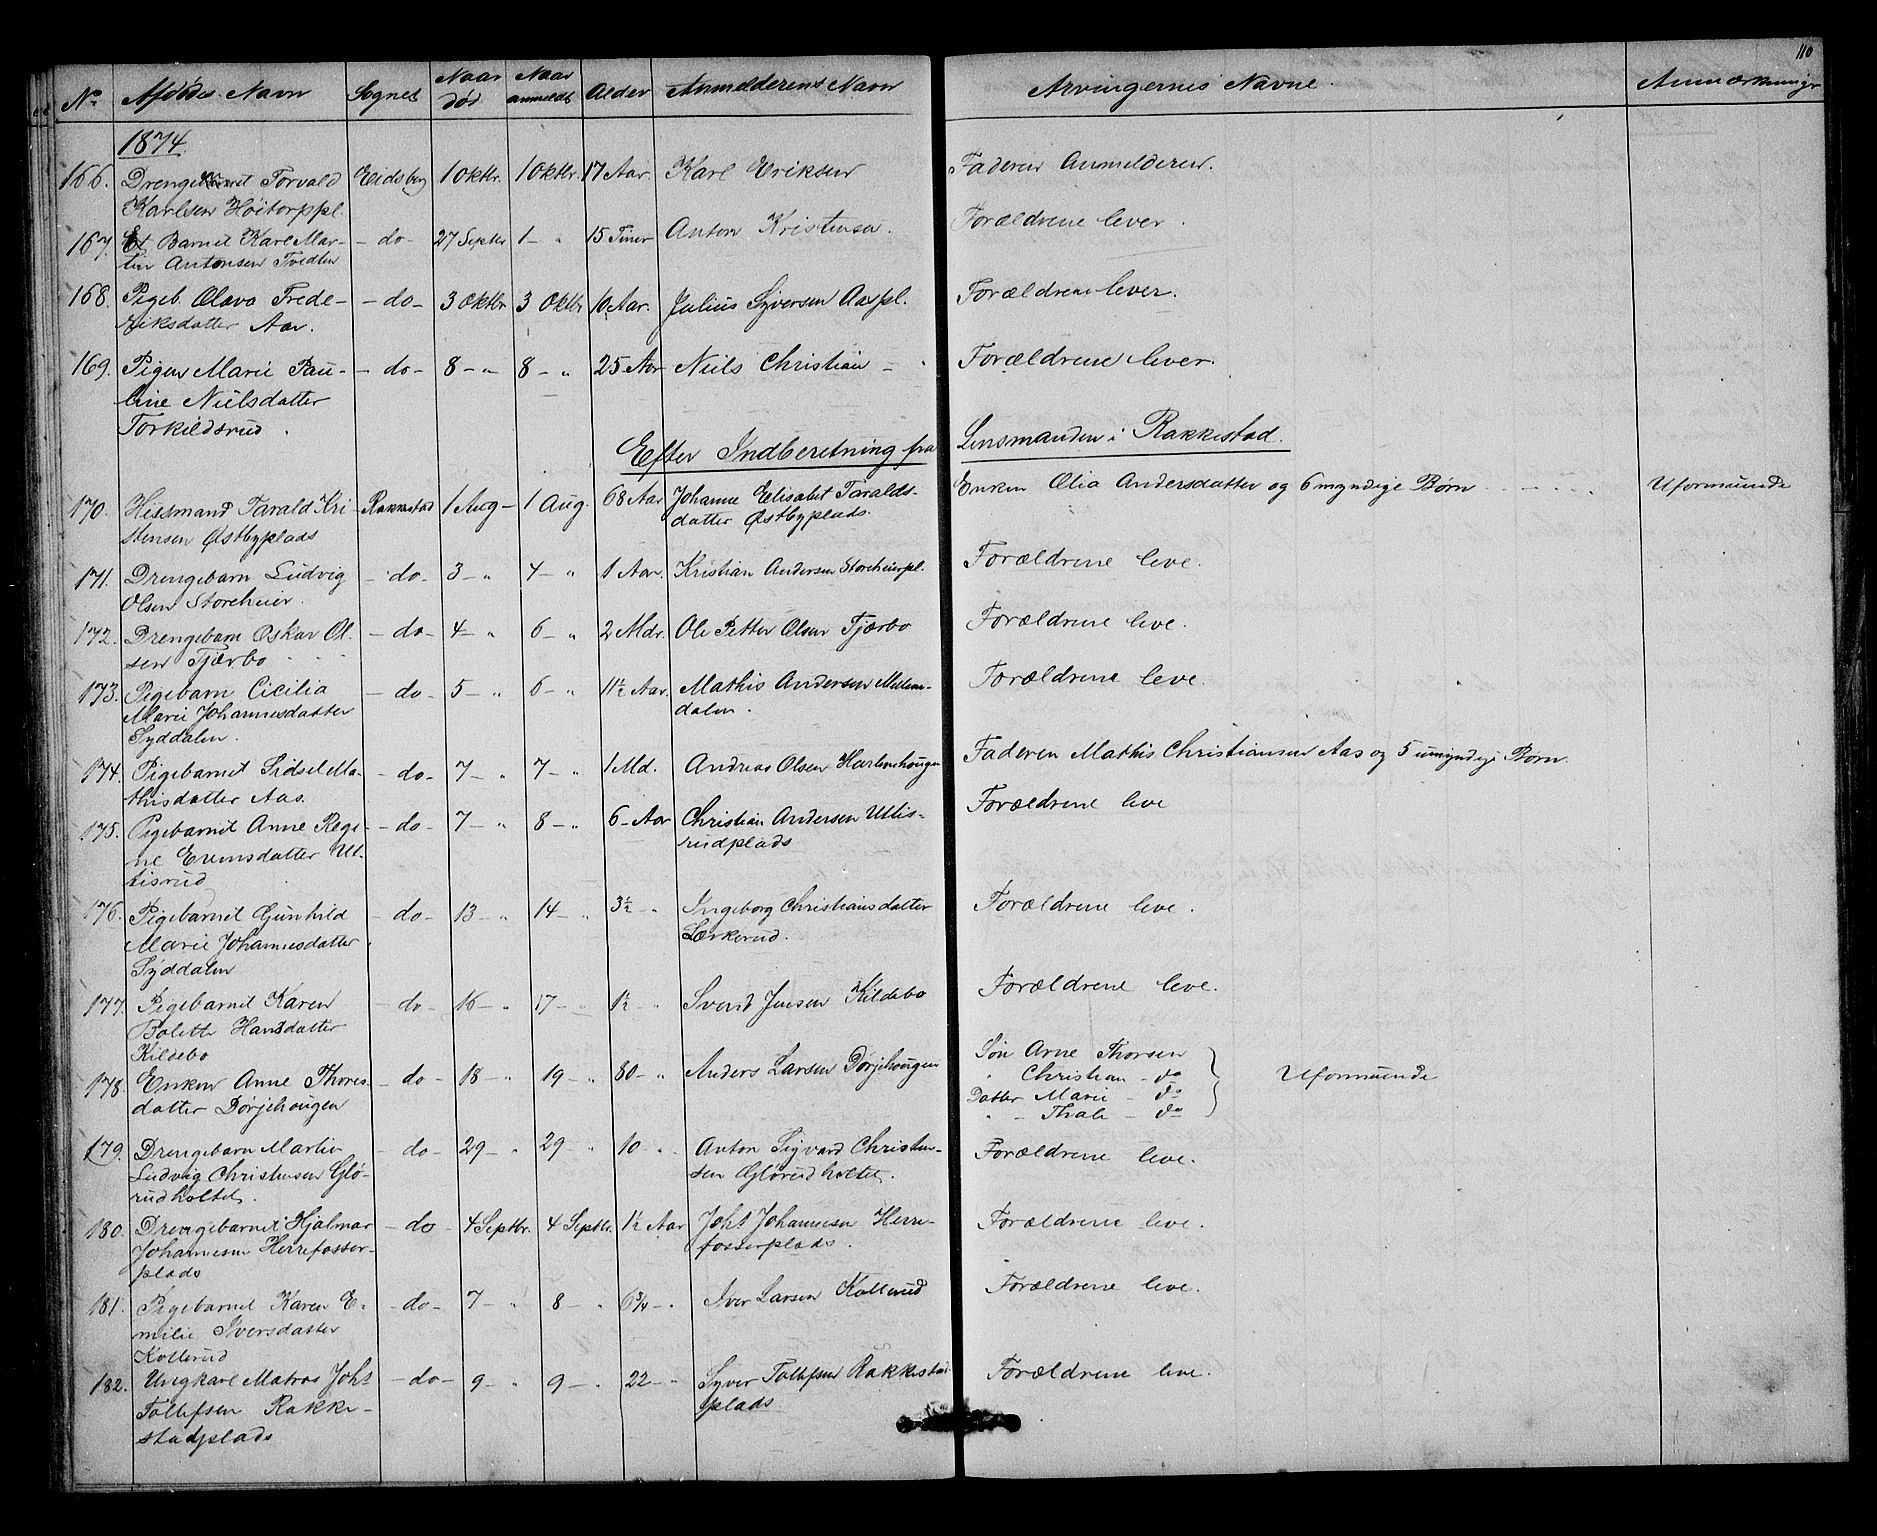 110
No Afdødes Navn Sognet Naar død Naar anmeldt Alder Anmelderens Navn Arvingernes Navne Anmærkninger
1874.
166. Drengebarnet Torvald Eidsberg 1 Oktbr. 1 Oktbr. 17 Aar. Karl Eriksen Faderen Anmelderen.
Karlsen Höitorppl.
167. Et Barnet Karl Mar- - do - 27 Septbr 1 - " 15 Timer Anton Kristensen. Forældrene lever.
tin Antonsen Tvedten
168. Pigeb. Olava Frede- - do - 3 Oktbr 3 Oktbr 10 Aar. Julius Syversen Aaspl. Forældrene lever.
riksdatter Aas.
169. Pigen Marie Pau- - do - 8 - " 8 - " 25 Aar Niels Christian - " Forældrene lever.
line Nielsdatter
Torkildsrud.
Efter Indberetning fra Lensmanden i Rakkestad.
170. Huusmand Tarald Kri- Rakkestad 1 Aug - 1 Aug. 68 Aar Johanne Elisabet Taralds- Enken Olia Andersdatter og 6 myndige Børn - - - - Uformuende
stensen Østbyplads datter Østbyplads.
171. Drengebarn Ludvig - do - 3 - " 4 - " 1 Aar. Kristian Andersen Storeheierpl. Forældrene leve.
Olsen Storeheier.
172. Drengebarn Oskar Ol- - do - 4 - " 6 - " 2 Mdr. Ole Petter Olsen Tjærbo Forældrene leve.
sen Tjærbo
173. Pigebarn Cicilia - do - 5 - " 6 - " 1 1/2 Aar. Mathis Andersen Mellem- Forældrene leve.
Marie Johannesdatter dalen.
Syddalen.
174. Pigebarnet Sidsel Ma- - do - 7 - " 7 - " 1 Md. Andreas Olsen Harlemhougen Faderen Mathis Christiansen Aas og 5 umyndige Børn.
thisdatter Aas.
175. Pigebarnet Anne Regi- - do - 7 - " 8 - " 6 - Aar Christian Andersen Utlis- Forældrene leve
ne Evensdatter Ut- rudplads
lisrud
176. Pigebarnet Gunhild - do - 13 - " 14 - " 3 1/2 - " Ingeborg Christiansdatter Forældrene leve.
Marie Johannesdatter Lærkerud.
Syddalen
177. Pigebarnet Karen - do - 16 - " 17 - " 1 1/2 - " Svend Jensen Kildebo Forældrene leve.
Bolette Hansdatter
Kildebo
178. Enken Anne Thores- - do - 18 - " 19 - " 80 - " Anders Larsen Dørjehougen Søn Arne Thorsen
datter Dørjehougen " Christian - do Uformuende
Datter Marie - do
" - Thale - do
179. Drengebarn Martin - do - 29 - " 29 " 10 - " Anton Sigvard Christen- Forældrene leve.
Ludvig Christensen Glø- sen Gløsrudholtet.
rudholtet.
180. Drengebarnet Hjalmar - do - 4 Septbr. 4 Septbr. 1 1/2 Aar Johs Johannesen Herre- Forældrene leve.
Johannesen Herrefosser- fosserplads.
plads
181. Pigebarnet Karen E- - do - 7 - " 8 - " 6 3/4 - " Iver Larsen Kolterud Forældrene leve.
milie Iversdatter
Kolterud
182. Ungkarl Matros Johs - do - 9 - " 9 - " 22 - " Syver Tollefsen Rakkestad Forældrene leve.
Tollefsen Rakke- plads
stadplads